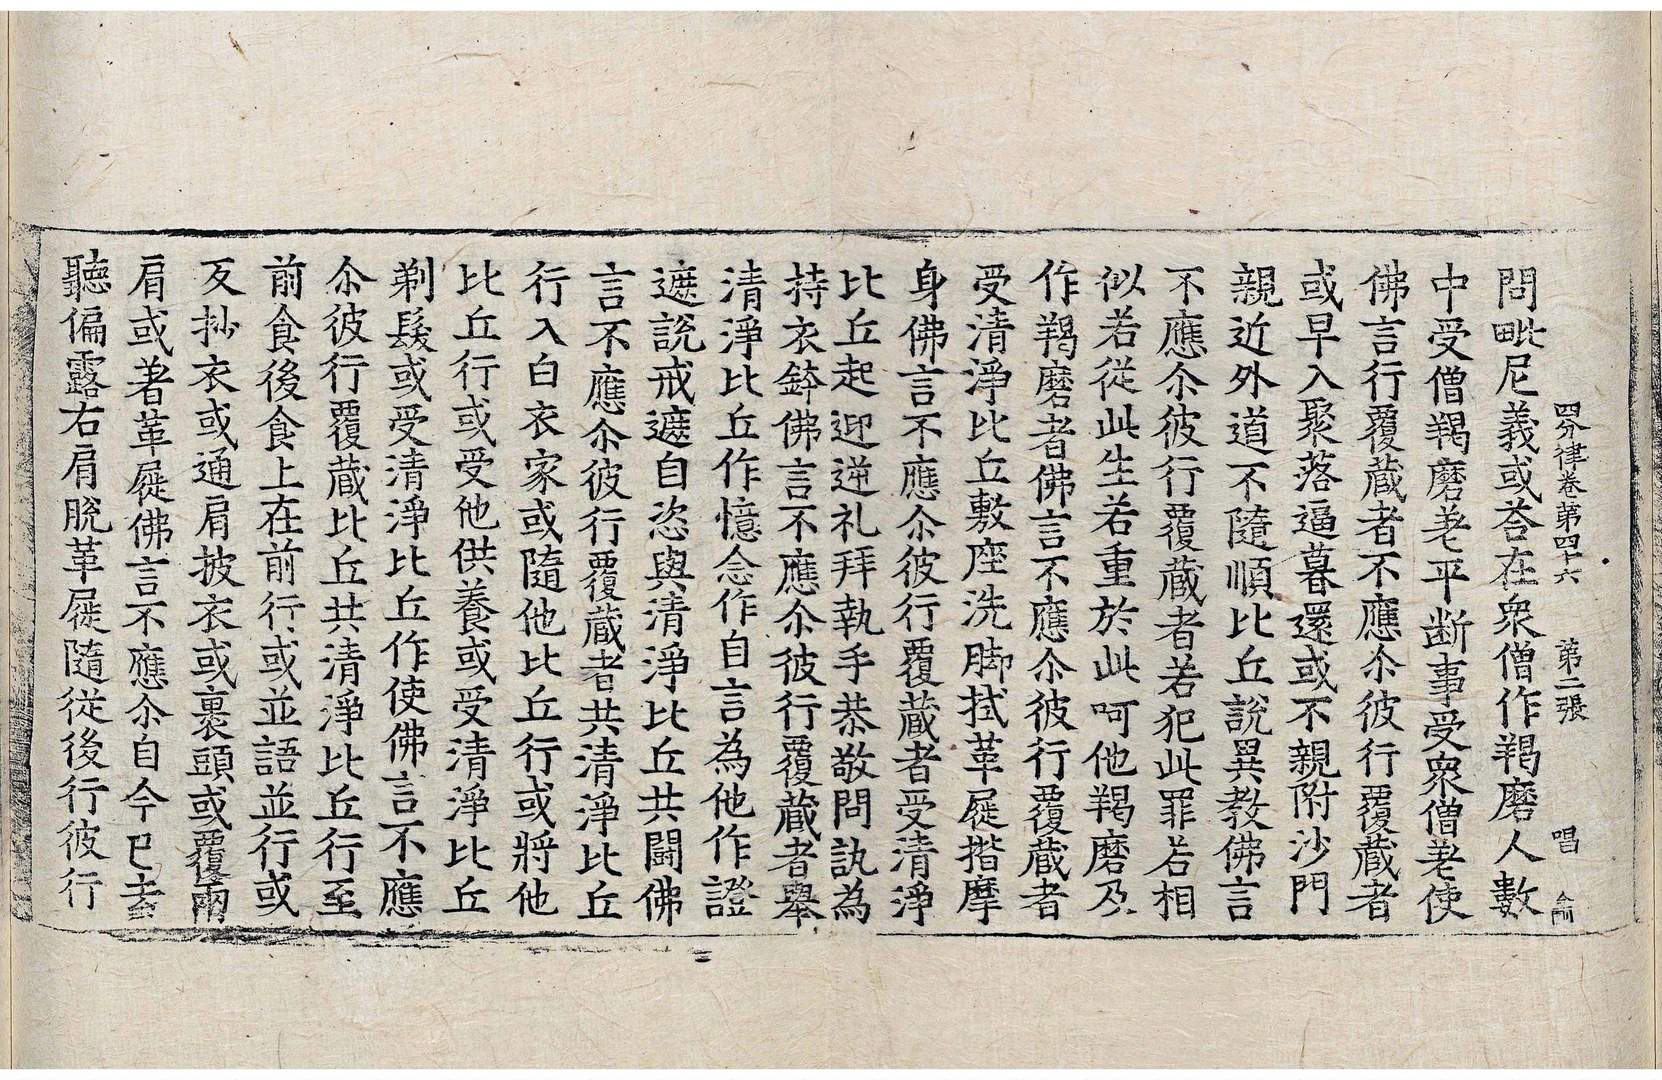 四分律卷第四十六　第二張　唱
問毗尼義或荅在衆僧作羯磨人數
中受僧羯磨差平断事受衆僧差使
佛言行覆蔵者不應尒彼行覆蔵者
或早入聚落逼暮還或不親附沙門
親近外道不隨順比丘說異教佛言
不應尒彼行覆蔵者若犯此罪若相
似若從此生若重於此呵他羯磨及
作羯磨者佛言不應尒彼行覆蔵者
受清淨比丘敷座洗脚拭革屣揩摩
身佛言不應尒彼行覆蔵者受清淨
比丘起迎逆礼拜執手恭敬問訊為
持衣鉢佛言不應尒彼行覆蔵者舉
清淨比丘作憶念作自言為他作證
遮說戒遮自恣與清淨比丘共鬪佛
言不應尒彼行覆蔵者共清淨比丘
行入白衣家或隨他比丘行或將他
比丘行或受他供養或受清淨比丘
剃髮或受清淨比丘作使佛言不應
尒彼行覆蔵比丘共清淨比丘行至
前食後食上在前行或並語並行或
反抄衣或通肩披衣或裹頭或覆兩
肩或著革屣佛言不應尒自今已去
聽偏露右肩脫革屣隨從後行彼行